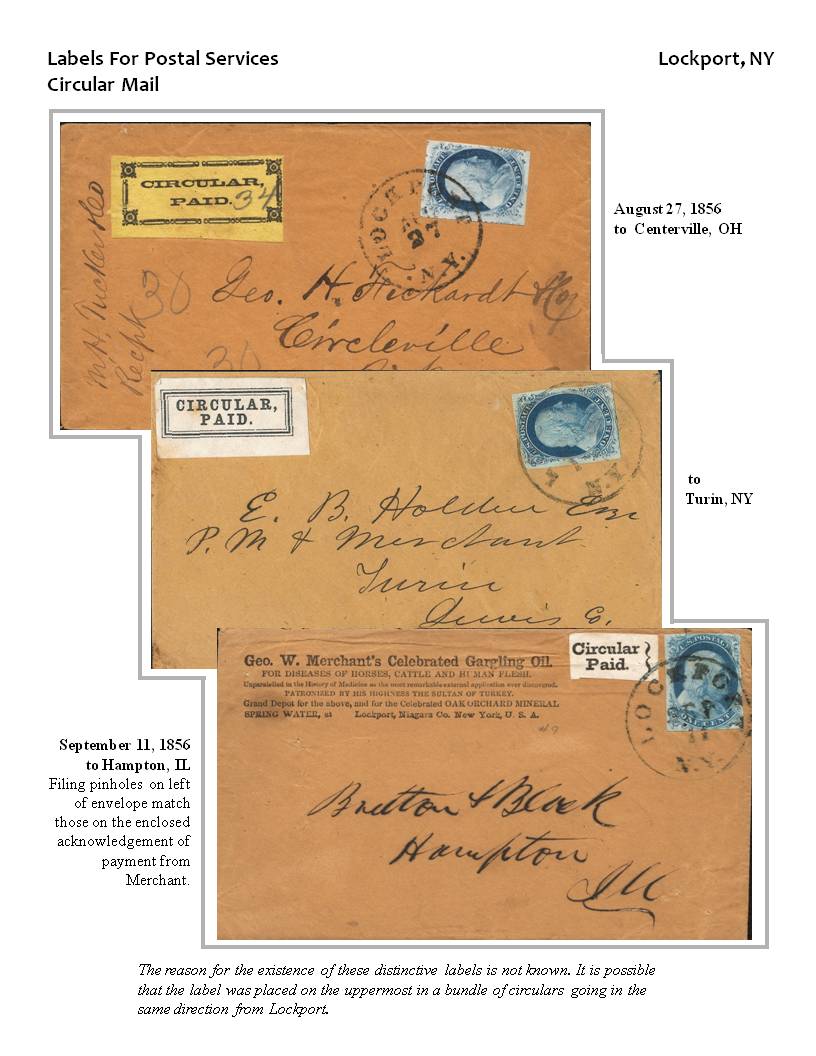 Labels For Postal Services
Circular Mail
Lockport, NY
CIRCULAR,
PAID.
34
LOCKPORT
27
N.Y.
August 27, 1856
to Centerville, OH
M H. Tucker & Co
Recpt
30
Geo. H. Fickardt & Co
Circleville
30
CIRCULAR,
PAID.
U.S. POSTAGE
to
Turin, NY
E. B. Holden Esq
P. M & Merchant
Turin
Lewis Co.
Geo. W. Merchant's Celebrated Gargling Oil.
FOR DISEASES OF HORSES, CATTLE AND HUMAN FLESH.
Unparalleled in the History of Medicine as the most remarkable external application ever discovered.
PATRONIZED BY HIS HIGHNESS THE SULTAN OF TURKEY.
Grand Depot for the above, and for the Celebrated OAK ORCHARD MINERAL
SPRING WATER, at Lockport, Niagara Co. New York, U. S. A.
Circular
Paid.
U.S. POSTAGE
ONE CENT
LOCKPORT
N.Y.
September 11, 1856
to Hampton, IL
Filing pinholes on left
of envelope match
those on the enclosed
acknowledgement of
payment from
Merchant.
Bretton & Block
Hampton
Ill
The reason for the existence of these distinctive labels is not known. It is possible
that the label was placed on the uppermost in a bundle of circulars going in the
same direction from Lockport.